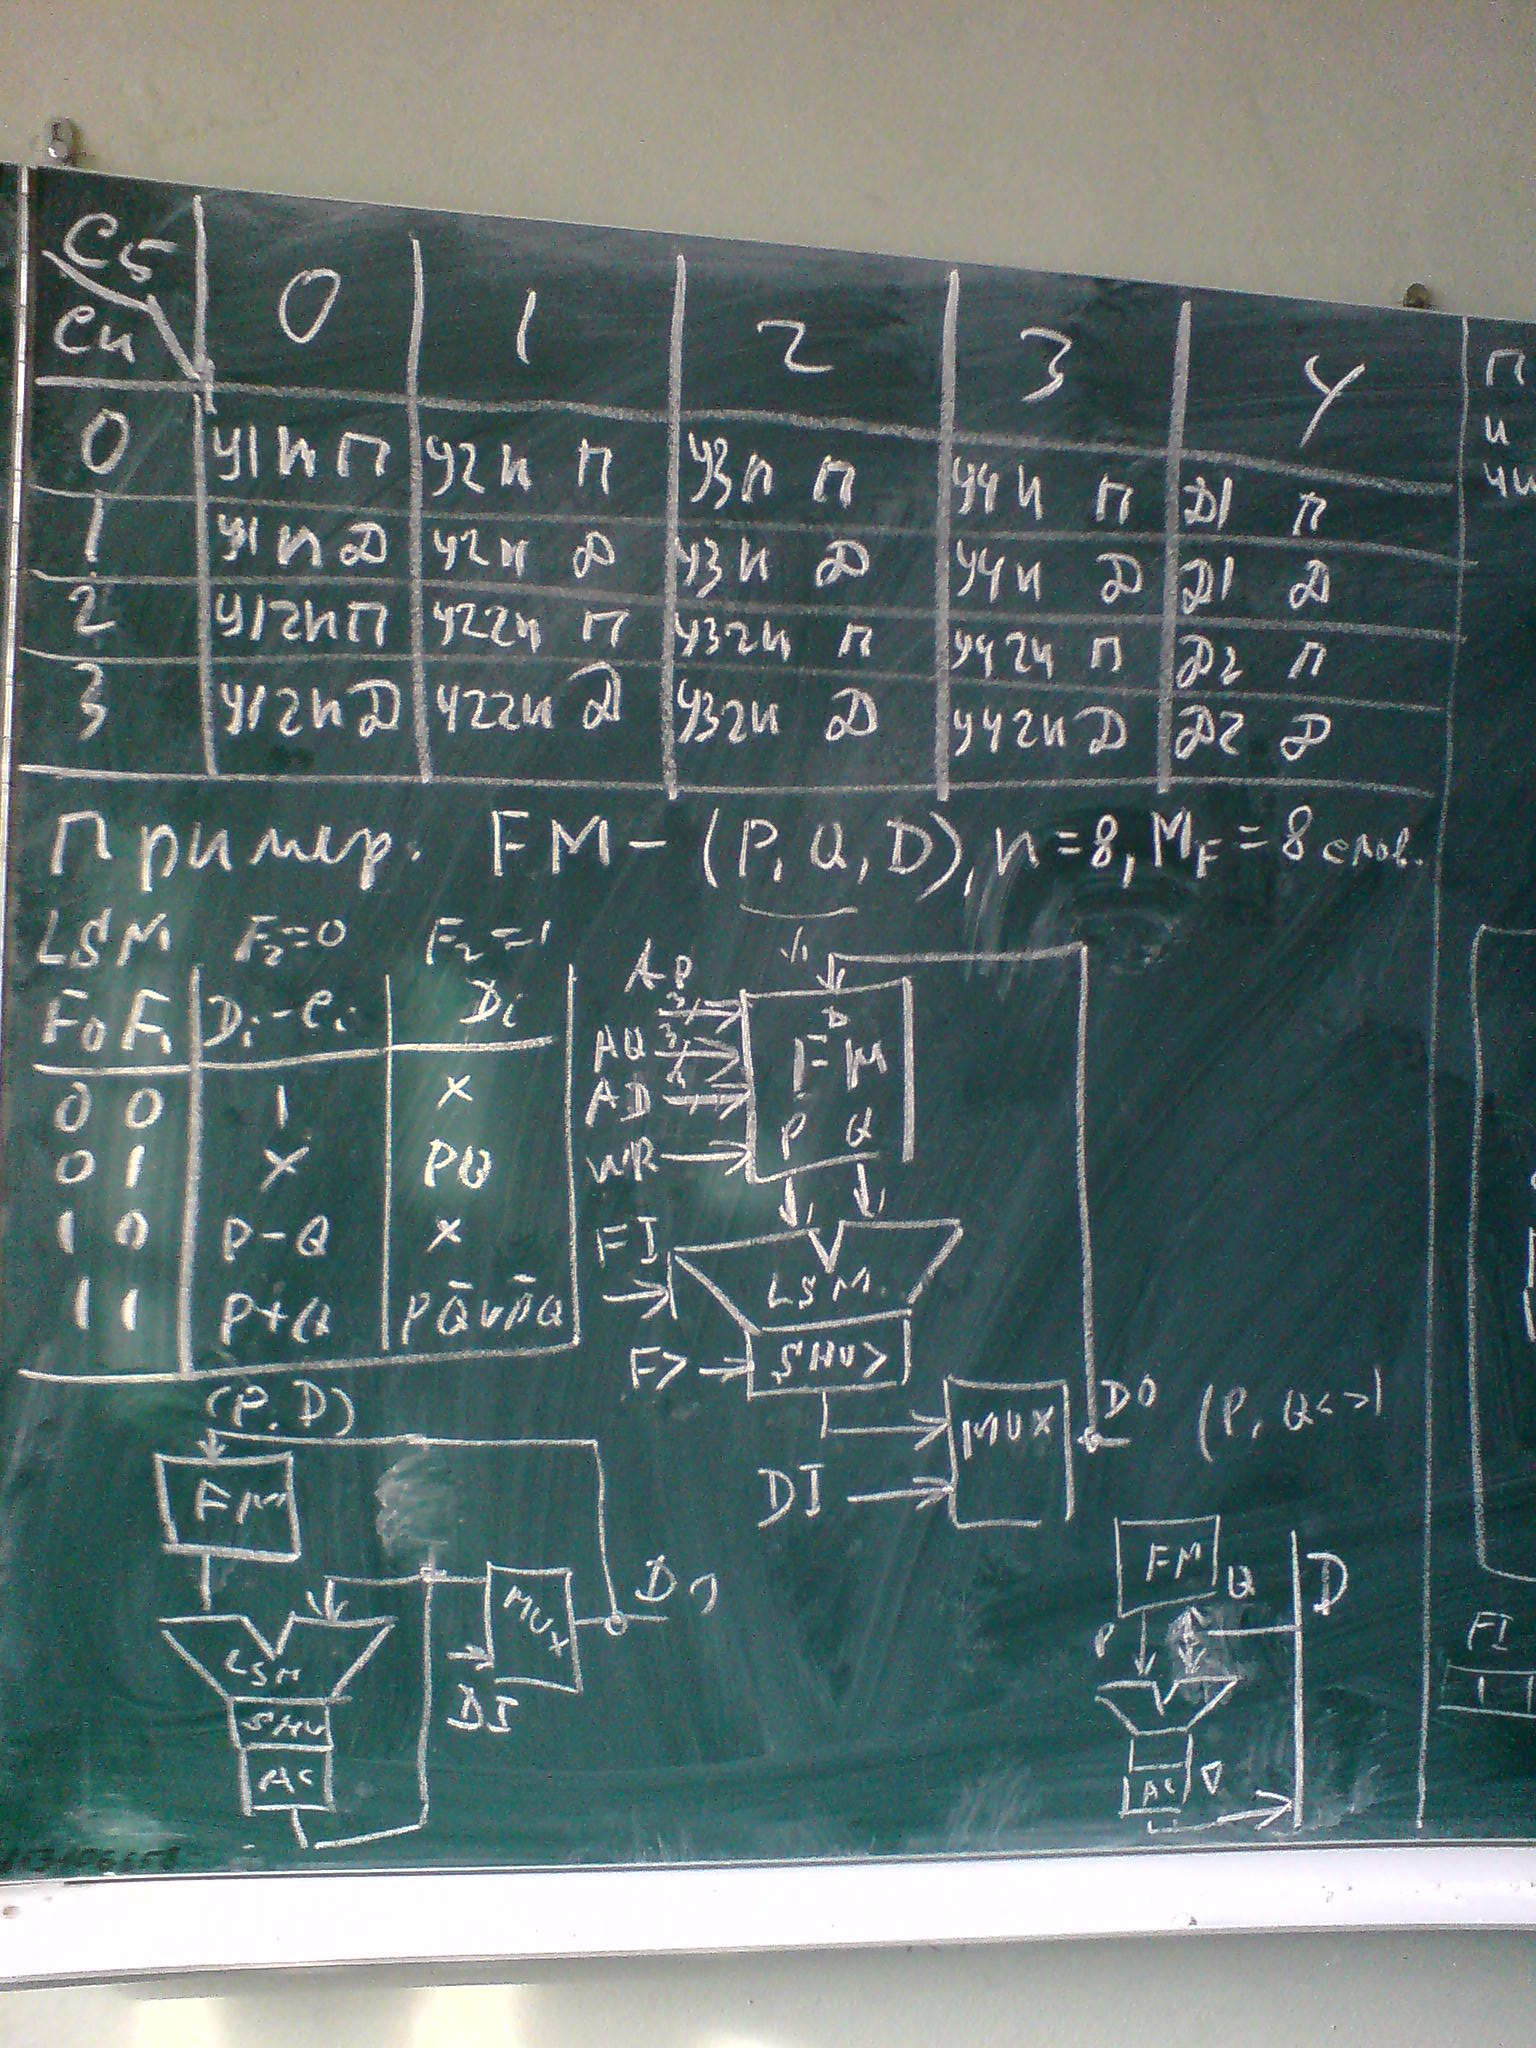 Сб
Си
0 1 2 3 4
0 У1И П У2И П У3И П У4И П Д1 П
1 У1И Д У2И Д У3И Д У4И Д Д1 Д
2 У12И П У22И П У32И П У42И П Д2 П
3 У12И Д У22И Д У32И Д У42И Д Д2 Д
Пример. FM - (P, Q, D), n = 8, MF = 8 слов.
LSM F2=0 F2=1
F0 F1 Di-Ci Di
0 0 1 X
0 1 X PQ
1 0 P-Q X
1 1 P+Q PQ̄ v P̄Q
AP
AQ 3
AD
WR
D
FM
P Q
FI
LSM
F>
SHU>
MUX
DI
DO
(P, Q<>)
(P, D)
FM
LSM
SHU
AC
MUX
DI
FM
Q
P
D
AC
П
и
чи
FI
1